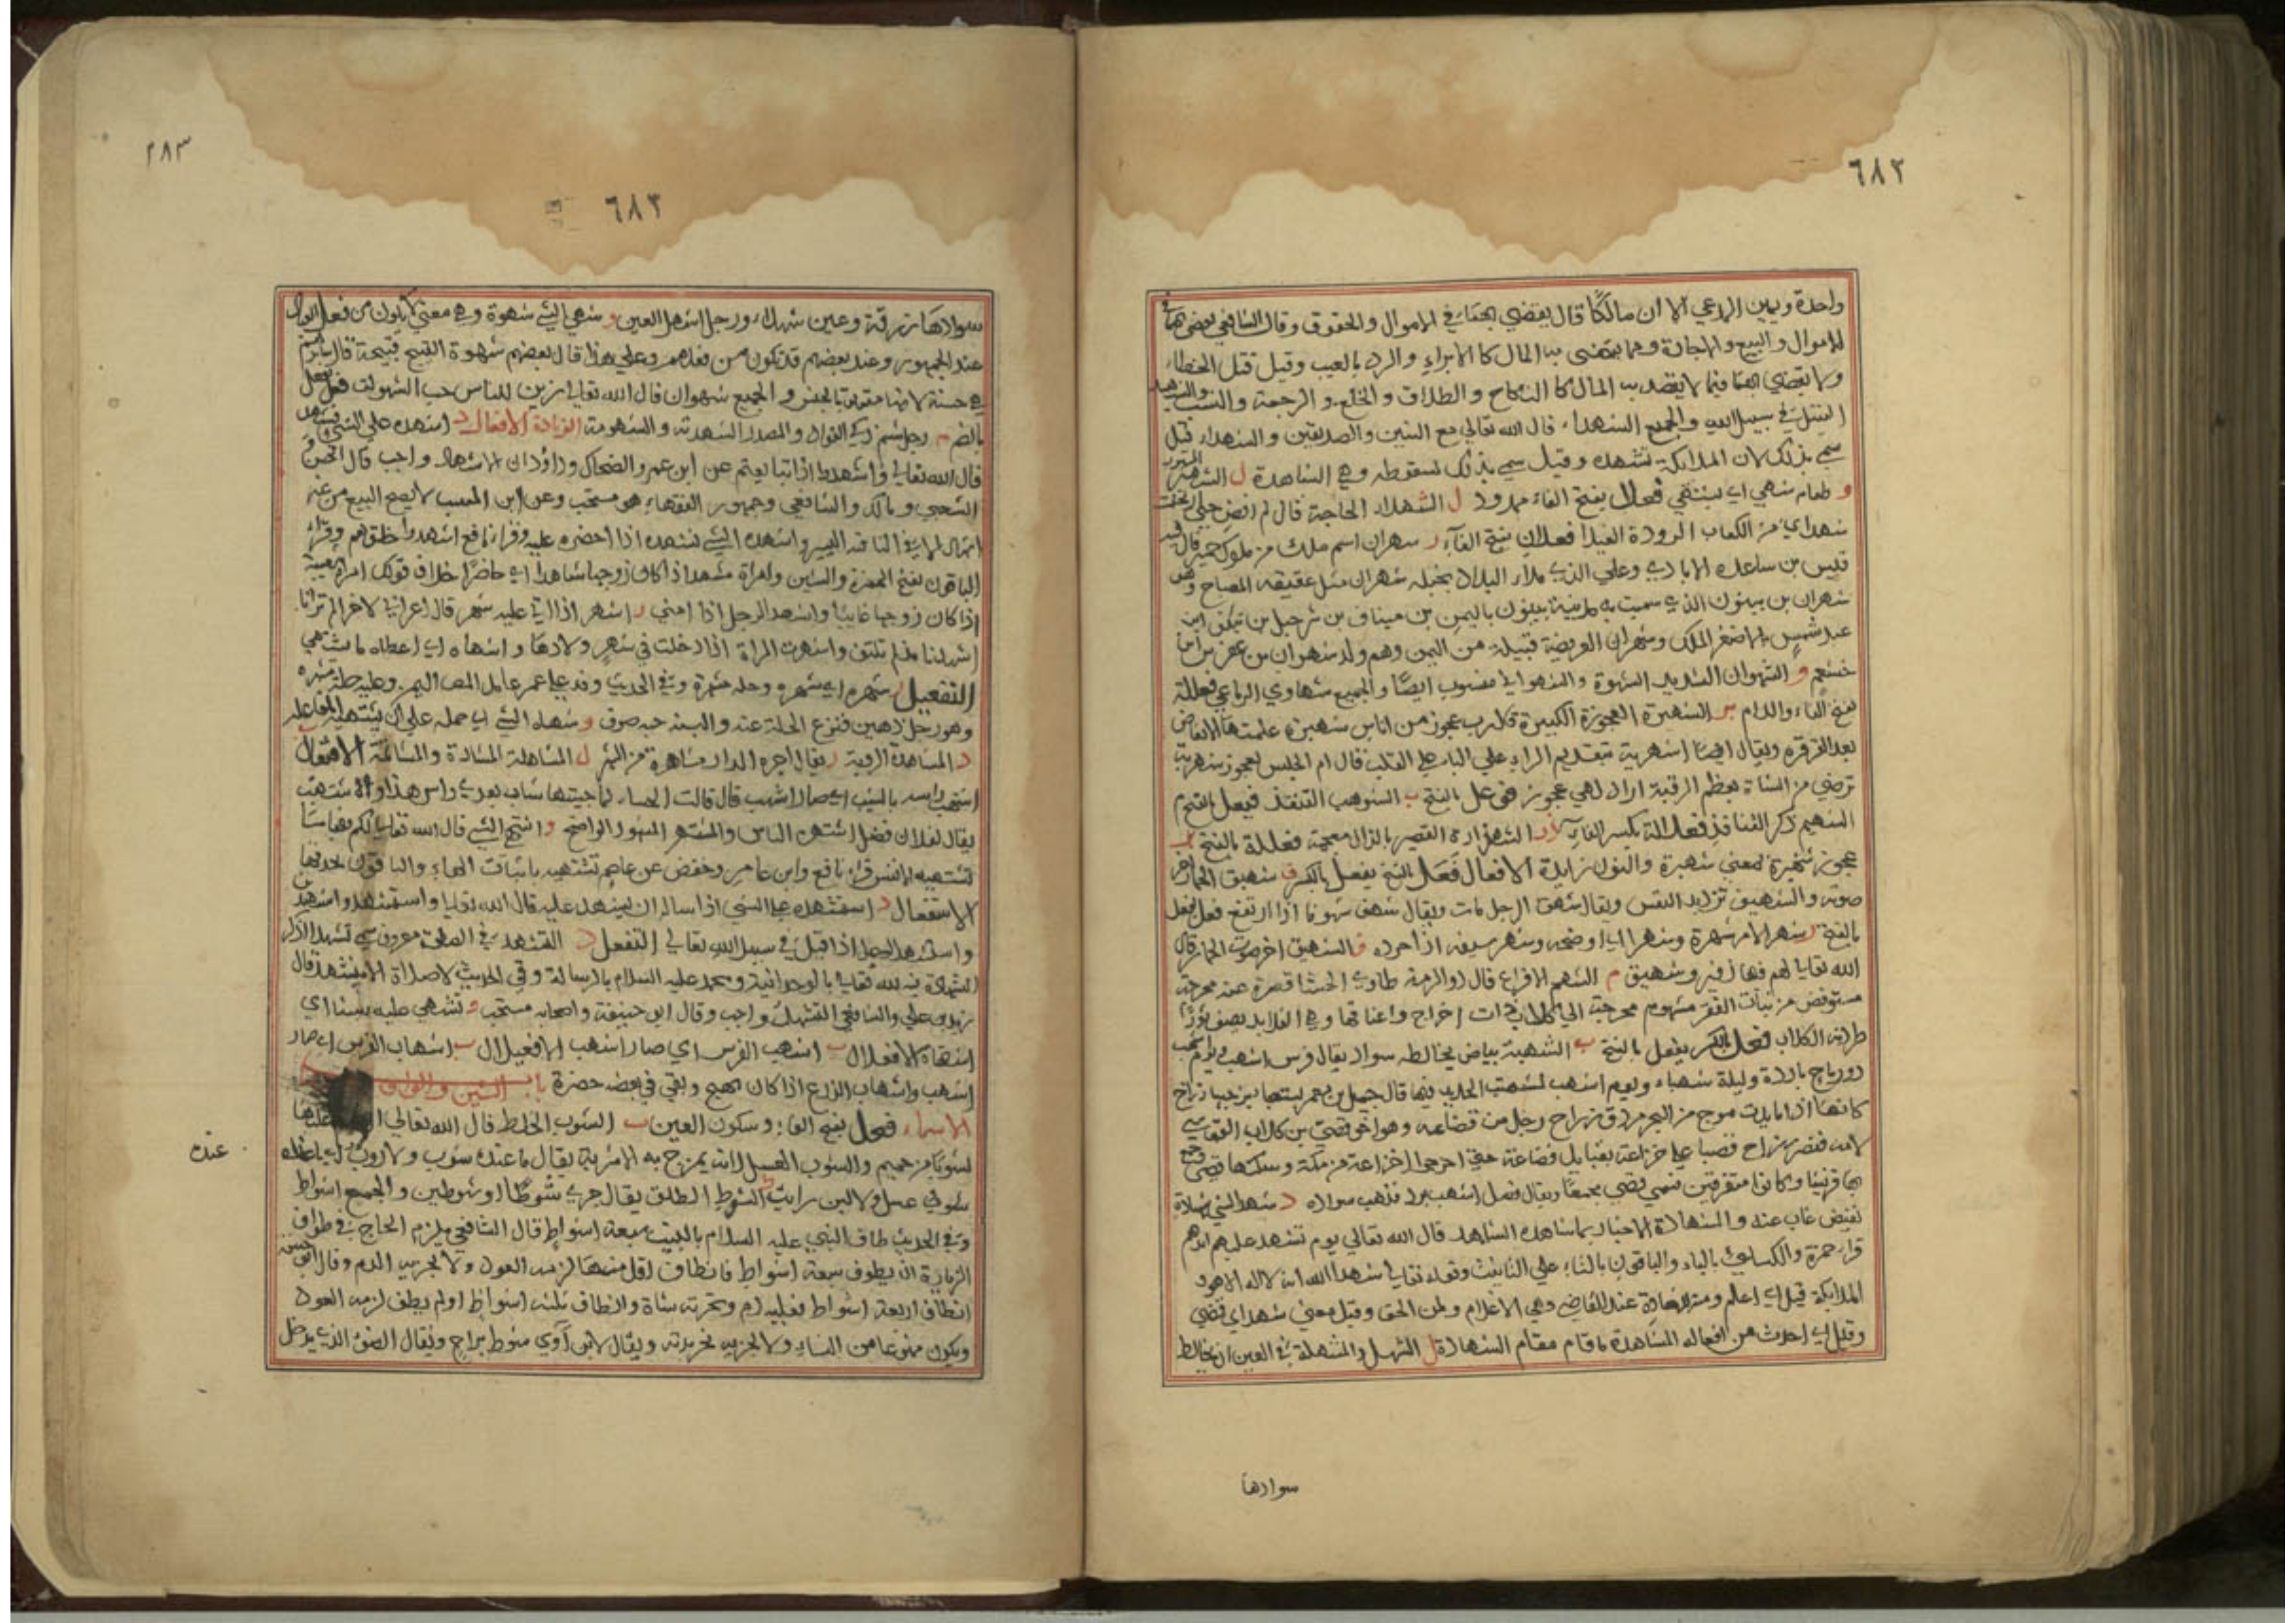 ٦٨٢
واحدة ويمين المدعي الا ان مالكًا قال يقضى بهما في الاموال والحقوق وقال الشافعي يقضى بهما في
الاموال والبيع والاجارة وما يقضى به المال كالابراء والرد بالعيب وقيل قتل الخطاء
ولا يقضى بهما فيما لا يقصد به المال كالنكاح والطلاق والخلع والرجعة والنسب والشهيد
القتيل في سبيل الله والجمع الشهداء قال الله تعالى مع النبيين والصديقين والشهداء قيل
سمي بذلك لان الملائكة تشهده وقيل سمي بذلك لسقوطه وهي الشاهدة ر الشهير المشهور
و طعام شهي اي يشتهى فعلاء بفتح الفاء ممدود ل الشهلاء الحاجة قال لم اقض حتى ارتحلت
شهلاي من الكعاب الرودة الغيدا فعلان بفتح الفاء ر شهران اسم ملك من ملوك حمير قال فيه
قيس بن ساعدة الايادي وعلى الذي ملاء البلاد بخيله شهران مثل عقيقه المصباح وهو
شهران بن بينون الذي سميت به مدينة بينون باليمن بن ميناف بن شرحبيل بن ينكف ابن
عبد شمس الاصغر الملك وشهران العريضة قبيلة من اليمن وهم ولد شهران بن عفرس بن
خثعم و الشهوان الشديد الشهوة والشهواني منسوب ايضًا والجمع شهاوي الرباعي فعللة
بفتح الفاء واللام بر الشهبرة العجوزة الكبيرة قال رب عجوز من اناس شهبرة علمتها الانقاض
بعد القرقرة ويقال ايضًا شهربة بتقديم الراء على الباء على القلب قال ام الحليس لعجوز شهربه
ترضى من الشاة بعظم الرقبة اراد لهي عجوز فوعل بالفتح ب الشوهب القنفذ فيعل بالفتح م
الشيهم ذكر القنافذ فعلالة بكسر الفاء ذر الشهذارة القصير بالذال معجمة فعللة بالفتح
عجوز شهبرة بمعنى شهبرة والنون زايدة الافعال فَعَل بالفتح يفعل بالكسر ق شهيق الحمار اخر
صوته والشهيق ترديد النفس ويقال شهق الرجل مات ويقال شهق شهوقا اذا ارتفع فعل يفعل
بالفتح ر شهر الامر شهرة وشهرا اي اوضحه وشهر سيفه اذا جرده ق الشهيق اخر صوت الحمار قال
الله تعالى لهم فيها زفير وشهيق م الشهم الافزاع قال ذو الرمة طاوي الحشا قصرت عنه محرجة
مستوفض من نبات القفر مشهوم محرجة اي كلاب ذات احراج واعناقها وهي القلايد يصف ثورًا
طردته الكلاب فعل بالكسر يفعل بالفتح ب الشهبة بياض يخالطه سواد يقال فرس اشهب ويوم اشهب
ذو رياح باردة وليلة شهباء ويوم اشهب لشهبة الحديد فيها قال جميل بن معمر
كانها اذا ما بدت موج من البحر مزرق رزاح رجل من قضاعه وهو اخو قصي بن كلاب القرشي
لامه فنصر رزاح قصيا على خزاعة بقبايل قضاعة حتى اخرجوا خزاعة من مكة وسكنها قصي وجمع
بها قريشا وكانوا متفرقين فسمي قصي مجمعًا ويقال فصل اشهب برد فذهب سواده د شهد الشئ شهادة
نقيض غاب عنه والشهادة الاخبار بما شاهده الشاهد قال الله تعالى يوم تشهد عليهم ايديهم
قراء حمزة والكسائي بالياء والباقون بالتاء على التانيث وقوله تعالى شهد الله انه لا اله الا هو و
الملائكة قيل اي اعلم ومنه الشهادة عند القاضي وهي الاعلام ولمن الحق وقيل معنى شهد اي قضى
وقيل اي احدث من افعاله المشاهدة ما قام مقام الشهادة ل الشهل والشهلة في العين ان يخالط
سوادها
٢٨٣
٦٨٣
سوادها زرقة وعين شهلاء ورجل اشهل العين و شهي الشئ شهوة وهي معنى لا يكون من فعل العباد
عند الجمهور وعند بعضهم قد تكون من فعلهم وعلى هذا قال بعضهم شهوة القبيح قبيحة قال
هي حسنة لانها متعلقة بالجنس والجمع شهوات قال الله تعالى زين للناس حب الشهوات فعل يفعل
بالضم م رجل شهم ذكي الفؤاد والمصدر الشهامة والشهومة الزيادة الافعال د اشهده على الشئ فشهد
قال الله تعالى واشهدوا اذا تبايعتم عن ابن عمر والضحاك وداؤد ان الاشهاد واجب قال الحسن و
الشعبي ومالك والشافعي وجمهور الفقهاء هو مستحب وعن ابن المسيب لا يصح البيع من غير
اشهاد الا في التافه اليسير واشهده الشئ فشهده اذا احضره عليه وقرأ نافع اشهدوا خلقهم وقراء
الباقون بفتح الهمزة والشين وامراة مشهد اذا كان زوجها شاهدا اي حاضرًا خلاف قولك امراة مغيبة
اذا كان زوجها غايبا واشهد الرجل اذا امنى ر اشهر اذا اتى عليه شهر قال اعرابي لاخر الم ترانا
اشهرنا مذ لم نلتق واشهرت المراة اذا دخلت في شهر ولادها و اشهاه اي اعطاه ما يشتهي
التفعيل ر شهره اي شهره وحله مشهرة وفي الحديث وفد على عمر عامل الى اليمن وعليه حلة مشهرة
وهو رجل دهين فنزع الحلة عنه والبسه جبة صوف و شهاه الشئ اي حمله على ان يشتهيه المفاعلة
د المشاهدة الروية ر يقال اجره الدار مشاهرة من الشهر ل المشاهلة المشادة والمشاتمة الافتعال
اشتهب راسه بالشيب اي صار اشهب قال قالت الخنساء لما جيتها شاب بعدي راس هذا واشتهب
يقال لفلان فضل اشتهره الناس والمشتهر المشهور الواضح و اشتهى الشئ قال الله تعالى لكم فيها ما
تشتهيه الانفس قراء نافع وابن عامر وحفص عن عاصم تشتهيه باثبات الهاء والباقون بحذفها
الاستفعال د استشهده على الشي اذا ساله ان يشهد عليه قال الله تعالى واستشهدوا شهيدين
واستشهد الرجل اذا قتل في سبيل الله تعالى التفعل د التشهد في الصلاة معروف سمي تشهدا لذكر
الشهادة فيه لله تعالى بالوحدانية ومحمد عليه السلام بالرسالة وفي الحديث لا صلاة الا بتشهد قال
زيد بن علي والشافعي التشهد واجب وقال ابو حنيفة واصحابه مستحب و تشهى عليه شيئا اي
اشتهاه الافعلال ب اشهب الفرس اي صار اشهب الافعيلال ب اشهاب الفرس اي صار
اشهب واشهاب الزرع اذا كان يهيج وبقي في بعضه خضرة باب الشين والواو
الاسماء فعل بفتح الفاء وسكون العين ب الشوب الخلط قال الله تعالى عليها
لشوبًا من حميم والشوب العسل الذي يمزج به الاشربة يقال ما عنده شوب ولا روب اي ما عنده
عنده
شوب عسل ولا لبن رايب ط الشوط الطلق يقال جرى شوطًا او شوطين والجمع اشواط
وفي الحديث طاف النبي عليه السلام بالبيت سبعة اشواط قال الشافعي يلزم الحاج في طواف
الزيارة ان يطوف سبعة اشواط فان طاف اقل منها لزمه العود ولا يجزيه الدم وقال ابو حنيفة
ان طاف اربعة اشواط فعليه دم وتجزيه شاة وان طاف ثلثه اشواط او لم يطف لزمه العود
ويكون ممنوعا من النساء ولا يجزيه غيره ويقال لابن آوي شوط براح ويقال الضوء الذي يدخل